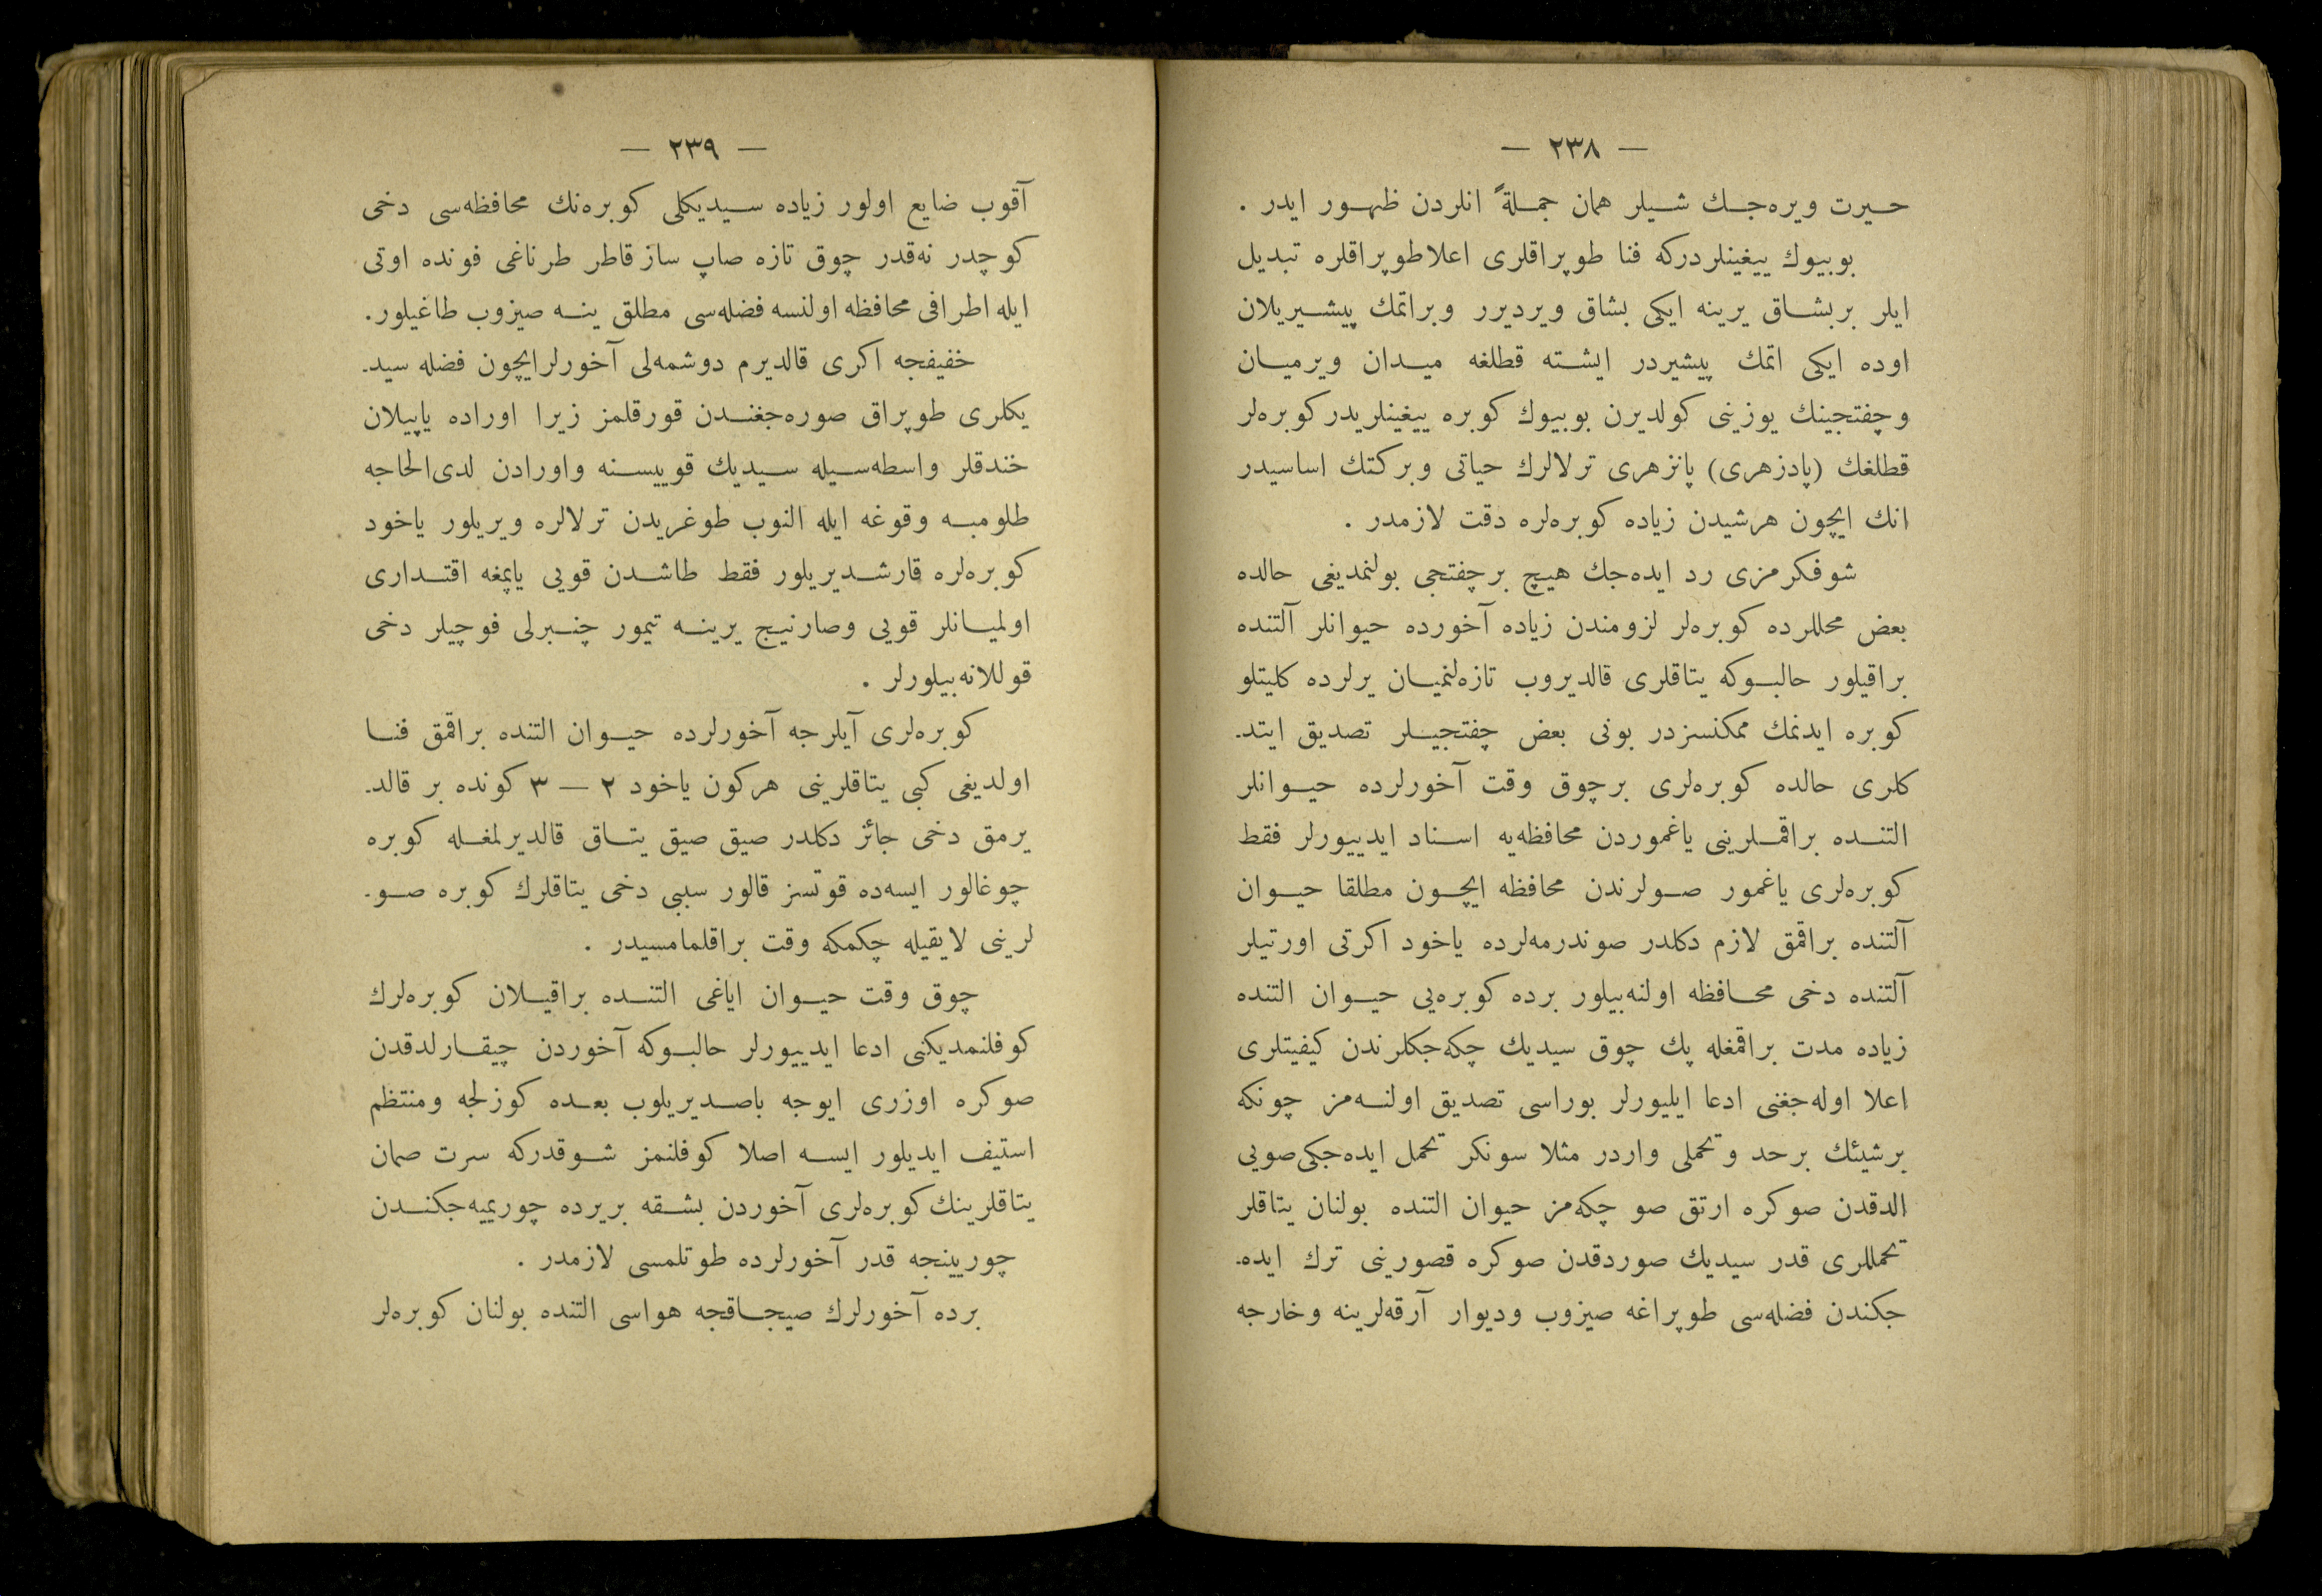 — ٢٣٨ —
حيرت ويره‌جك شيلر همان جملةً انلردن ظهور ايدر .
بوبيوك ييغينلردركه فنا طوپراقلرى اعلاطوپراقلره تبديل
ايلر بربشاق يرينه ايكى بشاق ويرديرر وبراتمك پيشيريلان
اوده ايكى اتمك پيشيردر ايشته قطلغه ميدان ويرميان
وچفتجينك يوزينى كولديرن بوبيوك كوبره ييغينلريدر كوبره‌لر
قطلغك (پادزهرى) پانزهرى ترلالرك حياتى وبركتك اساسيدر
انك ايچون هرشيدن زياده كوبره‌لره دقت لازمدر .
شوفكرمزى رد ايده‌جك هيچ برچفتجى بولنمديغى حالده
بعض محللرده كوبره‌لر لزومندن زياده آخورده حيوانلر آلتنده
براقيلور حالبوكه يتاقلرى قالديروب تازه‌لنميان يرلرده كليتلو
كوبره ايدنمك ممكنسزدر بونى بعض چفتجيلر تصديق ايتد-
كلرى حالده كوبره‌لرى برچوق وقت آخورلرده حيوانلر
التنده براقملرينى ياغموردن محافظه‌يه اسناد ايدييورلر فقط
كوبره‌لرى ياغمور صولرندن محافظه ايچون مطلقا حيوان
آلتنده براقمق لازم دكلدر صوندرمه‌لرده ياخود اكرتى اورتيلر
آلتنده دخى محافظه اولنه‌بيلور برده كوبره‌يى حيوان التنده
زياده مدت براقمغله پك چوق سيديك چكه‌جكلرندن كيفيتلرى
اعلا اوله‌جغنى ادعا ايليورلر بوراسى تصديق اولنه‌مز چونكه
برشيئك برحد وتحملى واردر مثلا سونكر تحمل ايده‌جكى صويى
الدقدن صوكره ارتق صو چكه‌مز حيوان التنده بولنان يتاقلر
تحمللرى قدر سيديك صوردقدن صوكره قصورينى ترك ايده-
جكندن فضله‌سى طوپراغه صيزوب وديوار آرقه‌لرينه وخارجه
— ٢٣٩ —
آقوب ضايع اولور زياده سيديكلى كوبره‌نك محافظه‌سى دخى
كوچدر نه‌قدر چوق تازه صاپ ساز قاطر طرناغى فونده اوتى
ايله اطرافى محافظه اولنسه فضله‌سى مطلق ينه صيزوب طاغيلور.
خفيفجه اكرى قالديرم دوشمه‌لى آخورلرايچون فضله سيد-
يكلرى طوپراق صوره‌جغندن قورقلمز زيرا اوراده ياپيلان
خندقلر واسطه‌سيله سيديك قوييسنه واورادن لدى‌الحاجه
طلومبه وقوغه ايله النوب طوغريدن ترلالره ويريلور ياخود
كوبره‌لره قارشديريلور فقط طاشدن قويى ياپمغه اقتدارى
اولميانلر قويى وصارنيج يرينه تيمور چنبرلى فوچيلر دخى
قوللانه‌بيلورلر .
كوبره‌لرى آيلرجه آخورلرده حيوان التنده براقمق فنا
اولديغى كبى يتاقلرينى هركون ياخود ٢ — ٣ كونده بر قالد-
يرمق دخى جائز دكلدر صيق صيق يتاق قالديرلمغله كوبره
چوغالور ايسه‌ده قوتسز قالور سببى دخى يتاقلرك كوبره صو-
لرينى لايقيله چكمكه وقت براقلمامسيدر .
چوق وقت حيوان اياغى التنده براقيلان كوبره‌لرك
كوفلنمديكنى ادعا ايدييورلر حالبوكه آخوردن چيقارلدقدن
صوكره اوزرى ايوجه باصديريلوب بعده كوزلجه ومنتظم
استيف ايديلور ايسه اصلا كوفلنمز شوقدركه سرت صمان
يتاقلرينك كوبره‌لرى آخوردن بشقه بريرده چوريميه‌جكندن
چوريينجه قدر آخورلرده طوتلمسى لازمدر .
برده آخورلرك صيجاقجه هواسى التنده بولنان كوبره‌لر